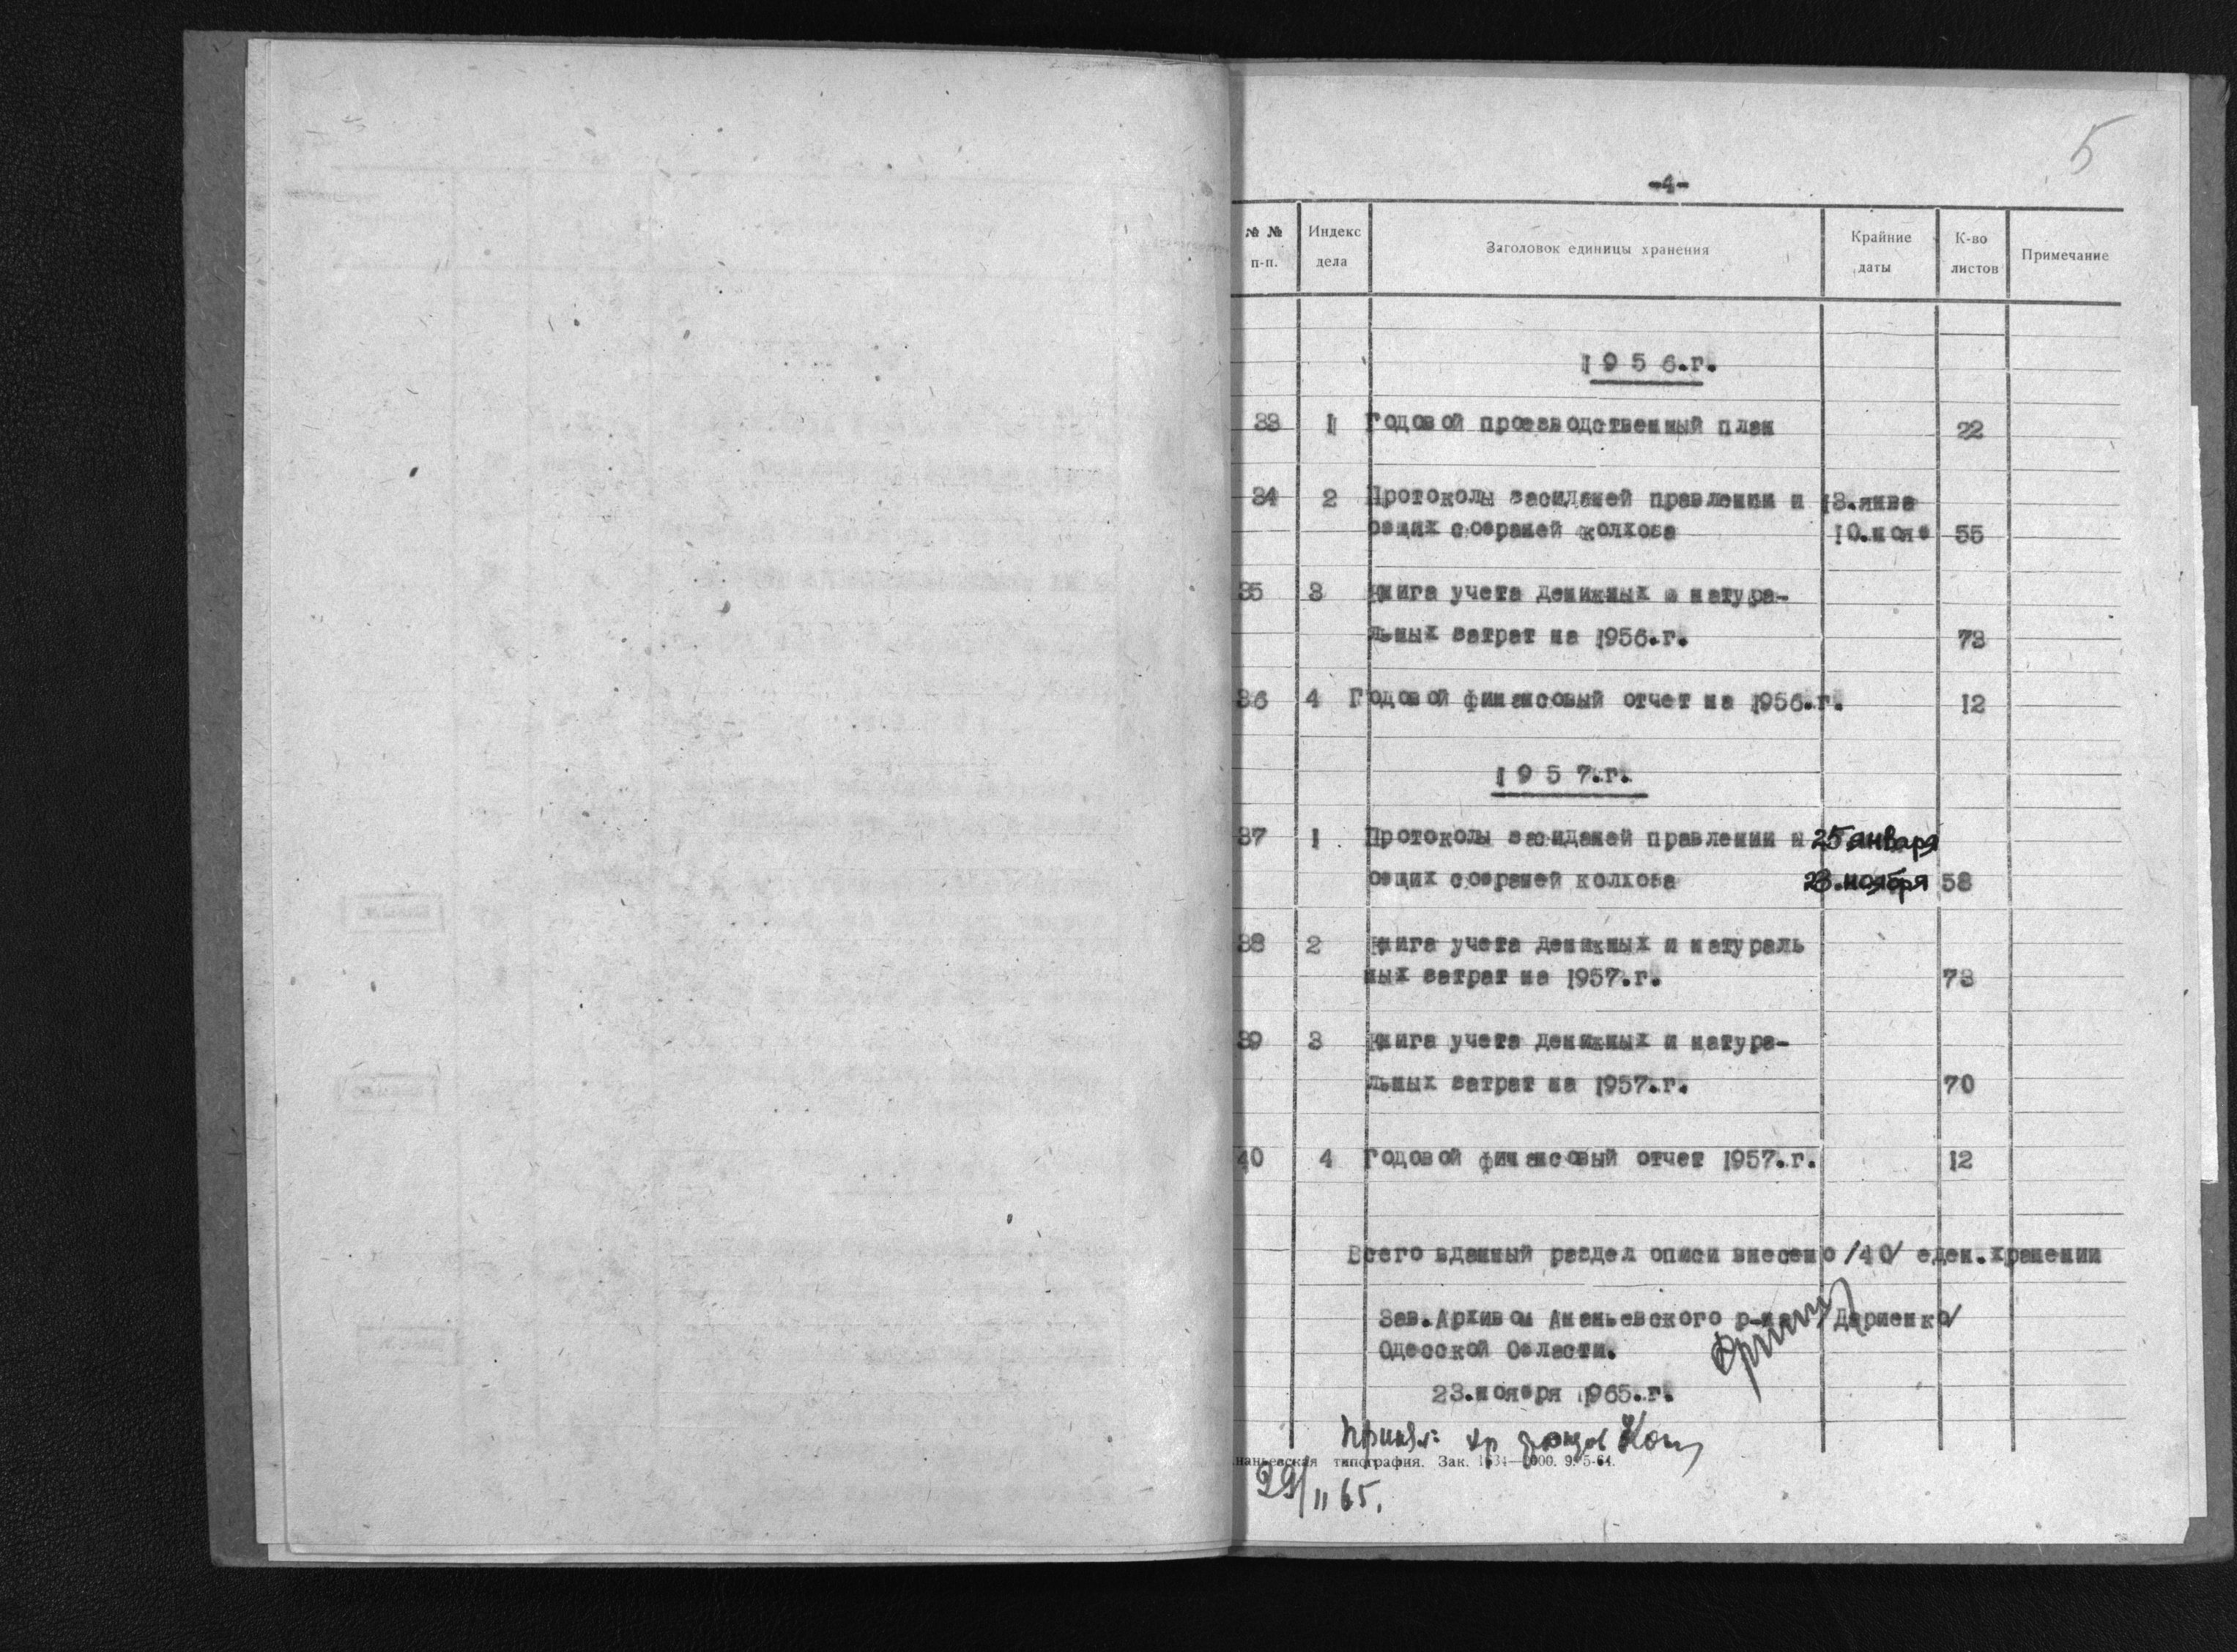 5
-4-
№ № п-п. Индекс дела Заголовок единицы хранения Крайние даты К-во листов Примечание
1 9 5 6.г.
33 1 Годовой производственный план 22
34 2 Протоколы засиданей правлении и 13.янва
общих собраней колхоза 10.ноя 55
35 3 Книга учета денижных и натура-
льных затрат на 1956.г. 73
36 4 Годовой финансовый отчет на 1956.г. 12
1 9 5 7.г.
37 1 Протоколы засиданей правлении и 25 января
общих собраней колхоза 23.ноября 58
38 2 Книга учета денижных и натураль
ных затрат на 1957.г. 73
39 3 Книга учета денижных и натура-
льных затрат на 1957.г. 70
40 4 Годовой финансовый отчет 1957.г. 12
Всего вданный раздел описи внесено /40/ един.хранении
Зав.Архивом Ананьевского р-на /Дариенко/
Одесской Области.
23.ноября 1965.г.
Принял:
наньевская типография. Зак. 1634—1000. 9-5-64.
29/II 65.